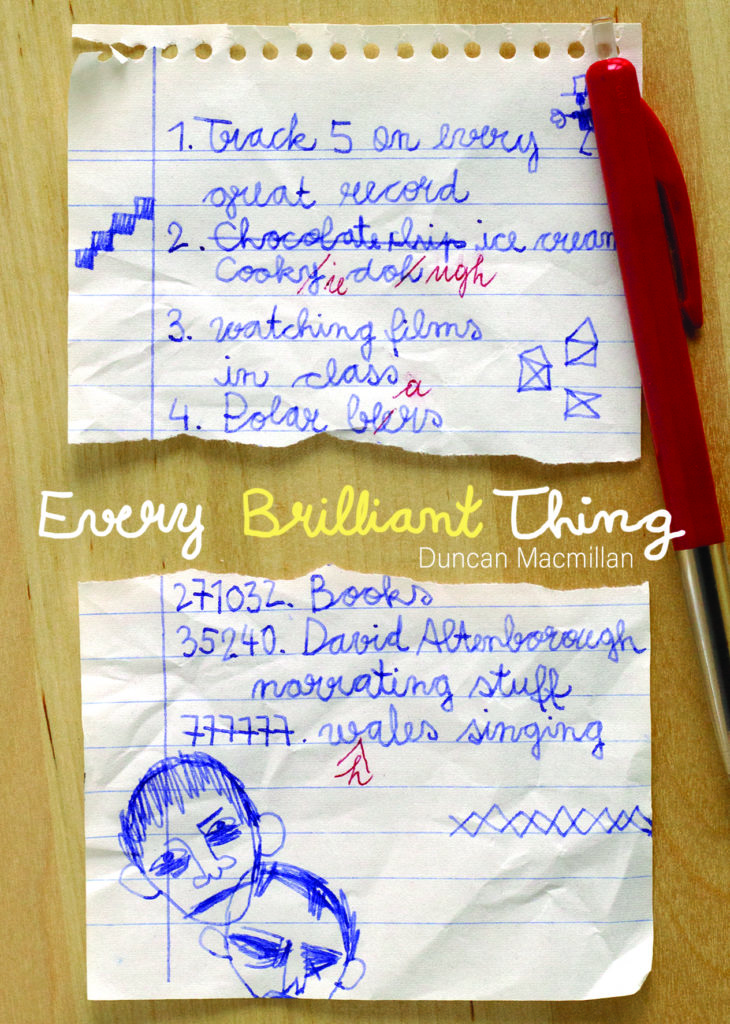 1. Track 5 on every
great record
2. Chocolate chip ice cream
Cookie dough
3. watching films
in class
4. Polar bears
Every Brilliant Thing
Duncan Macmillan
271032. Books
35240. David Attenborough
narrating stuff
777777. wales singing
h